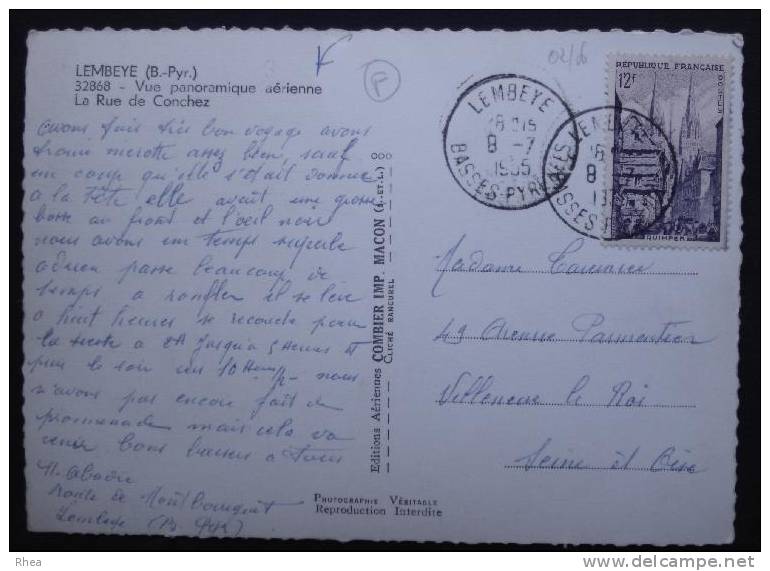 LEMBEYE (B.-Pyr.)
32868 - Vue panoramique aérienne
La Rue de Conchez
avons fait très bon voyage avons
trouvé assez bien, sauf
un coup qu'elle s'était donnée
a la Tête elle avait une grosse
bosse au front et l'oeil noir
nous avons un temps superbe
adrien passe beaucoup de
temps a ronfler il se lève
a huit heures se recouche pour
la sieste a 2H jusqu'a 5 heures et
puis le soir 10 heures nous
n'avons pas encore fait de
promenade mais cela va
venir bons baisers a Tous
Abadie
route de
Lembeye
Editions Aériennes COMBIER IMP. MACON (S.-ET-L.)
CLICHÉ RANCUREL
PHOTOGRAPHIE VÉRITABLE
Reproduction Interdite
F
02/6
LEMBEYE
18H15
8 -7
1955
BASSES-PYRÉNÉES
RÉPUBLIQUE FRANÇAISE
12F
POSTES
QUIMPER
Madame
49 Avenue Parmentier
Villeneuve le Roi
Seine et Oise
Rhea
delcampe.net